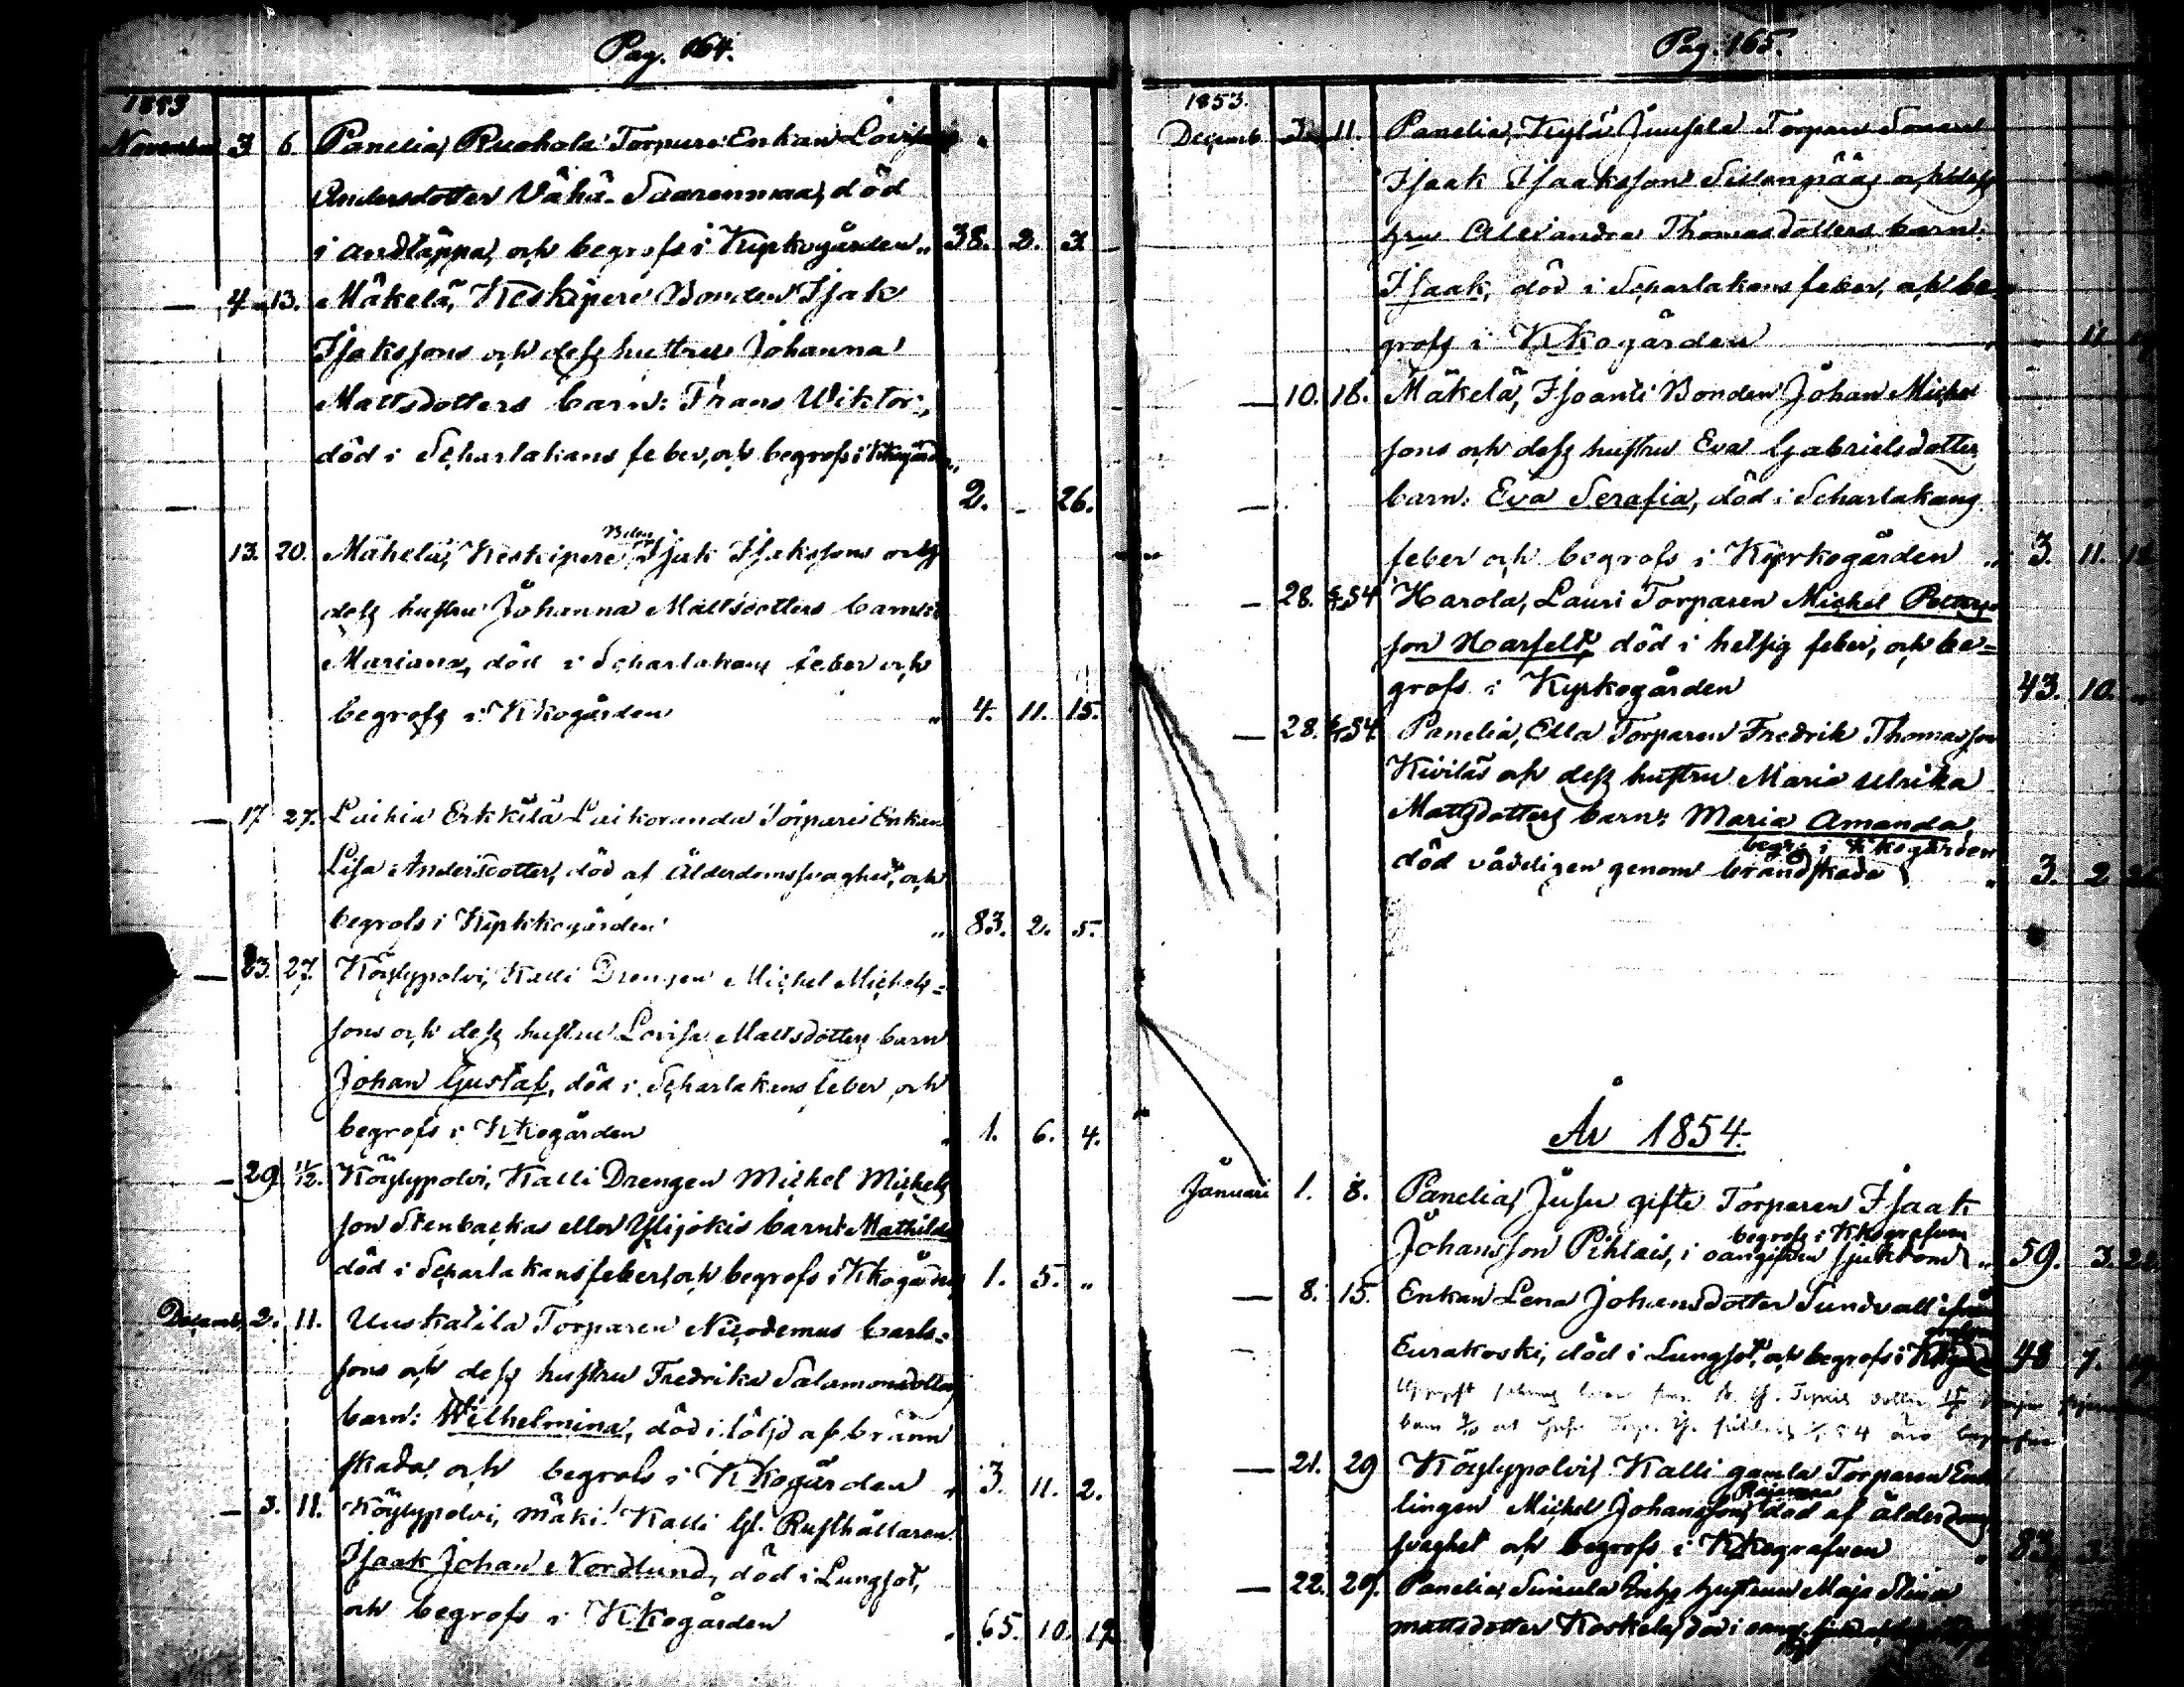 Pag. 164.
1853
November 3. 6. Panelia, Ruohola Torpare Enkan Lovisa
Andersdotter Vähä-Saarenmaa, död
i andtäppa, och begrofs i Kyrkogården „ 38. 2. 3.
— 4. 13. Mäkelä, Keskipere Bonden Isak
Isakssons och dess hustrus Johanna
Mattsdotters barn: Frans Wiktor,
död i Scharlakans feber, och begrofs i Kkogården
2. - 26.
13. 20. Mäkelä, Keskipere Isak Isakssons och
dess hustru Johanna Mattsdotters barn:
Mariana, död i Scharlakans feber och
begrofs i Kkogården „ 4. 11. 15.
— 17 27. Erkkilä Torpare Enkan
Lisa Andersdotter, död af Ålderdomssvaghet, och
begrofs i Kyrkkogården „ 83. 2. 5.
— 23. 27. Köylypolvi, Kalli Drengen Michel Michels=
sons och dess hustru Lovisa Mattsdotters barn
Johan Gustaf, död i Scharlakans feber och
begrofs i Kkogården „ 1. 6. 4.
— 29. 11/12. Köylypolvi, Kalli Drengen Michel Michels
son Stenbackas eller Ylijokis barn: Mathilda
död i Scharlakans feber, och begrofs i Kkogården 1. 5. „
Decemb. 2. 11. Uuskalila Torparen Nicodemus Carls=
sons och dess hustru Fredrika Salamonsdotters
barn: Wilhelmina, död i följd af bränn
skada, och begrofs i Kkogården „ 3. 11. 2.
— 3. 11. Köylypolvi, Mäki-Kalli Gl. Rusthållaren
Isaak Johan Nordlund, död i Lungsot,
och begrofs i Kkogården „ 65. 10. 19.
Pag. 165.
1853.
Decemb 11. Panelia, Kylä Juusela Torpare Sonens
Isaak Isaakssons Sillanpääs och dess
hru Alexandra Thomasdotters barn:
Isaak, död i Scharlakans feber, och be-
grofs i Kkogården „ - 11.
— 10. 18. Mäkelä, Isoanti Bonden Johan Michel
sons och dess hustru Eva Gabrielsdotters
barn: Eva Serafia, död i Scharlakans
feber och begrofs i Kyrkogården „ 3. 11.
— 28. 54 Harola, Lauri Torparen Michel
son Harfelt, död i hetsig feber, och be=
grofs i Kyrkogården 43. 10.
— 28. 54. Panelia, Ella Torparen Fredrik Thomasson
Kiviläs och dess hustru Maria Ulrika
Mattsdotters barn: Maria Amanda,
begr. i Kkogården
död vådeligen genom brandskada „ 3. 2
År 1854.
Januari 1. 8. Panelia, Jusu gifte Torparen Isaak
begrofs i Kkografven
Johansson Pihlais, i oangifven sjukdom „ 59. 3. 22.
— 8. 15. Enkan Lena Johansdotter Sundvall ifrån
Eurakoski, död i Lungsot, och begrofs i 48 7.
— 21. 29 Köylypolvi, Kalli gamla Torparen Enk
lingen Michel Johansson, död af ålderdoms
svaghet och begrofs i Kkografven 83.
— 22. 29. Panelia, hustrun Maja Stina
Mattsdotter Koskela, död i